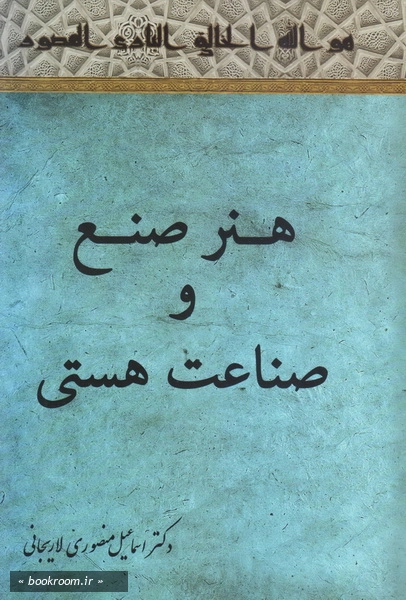 هو الله الخالق البادی المصور
هنر صنع
و
صناعت هستی
دکتر اسماعیل منصوری لاریجانی
« bookroom.ir »